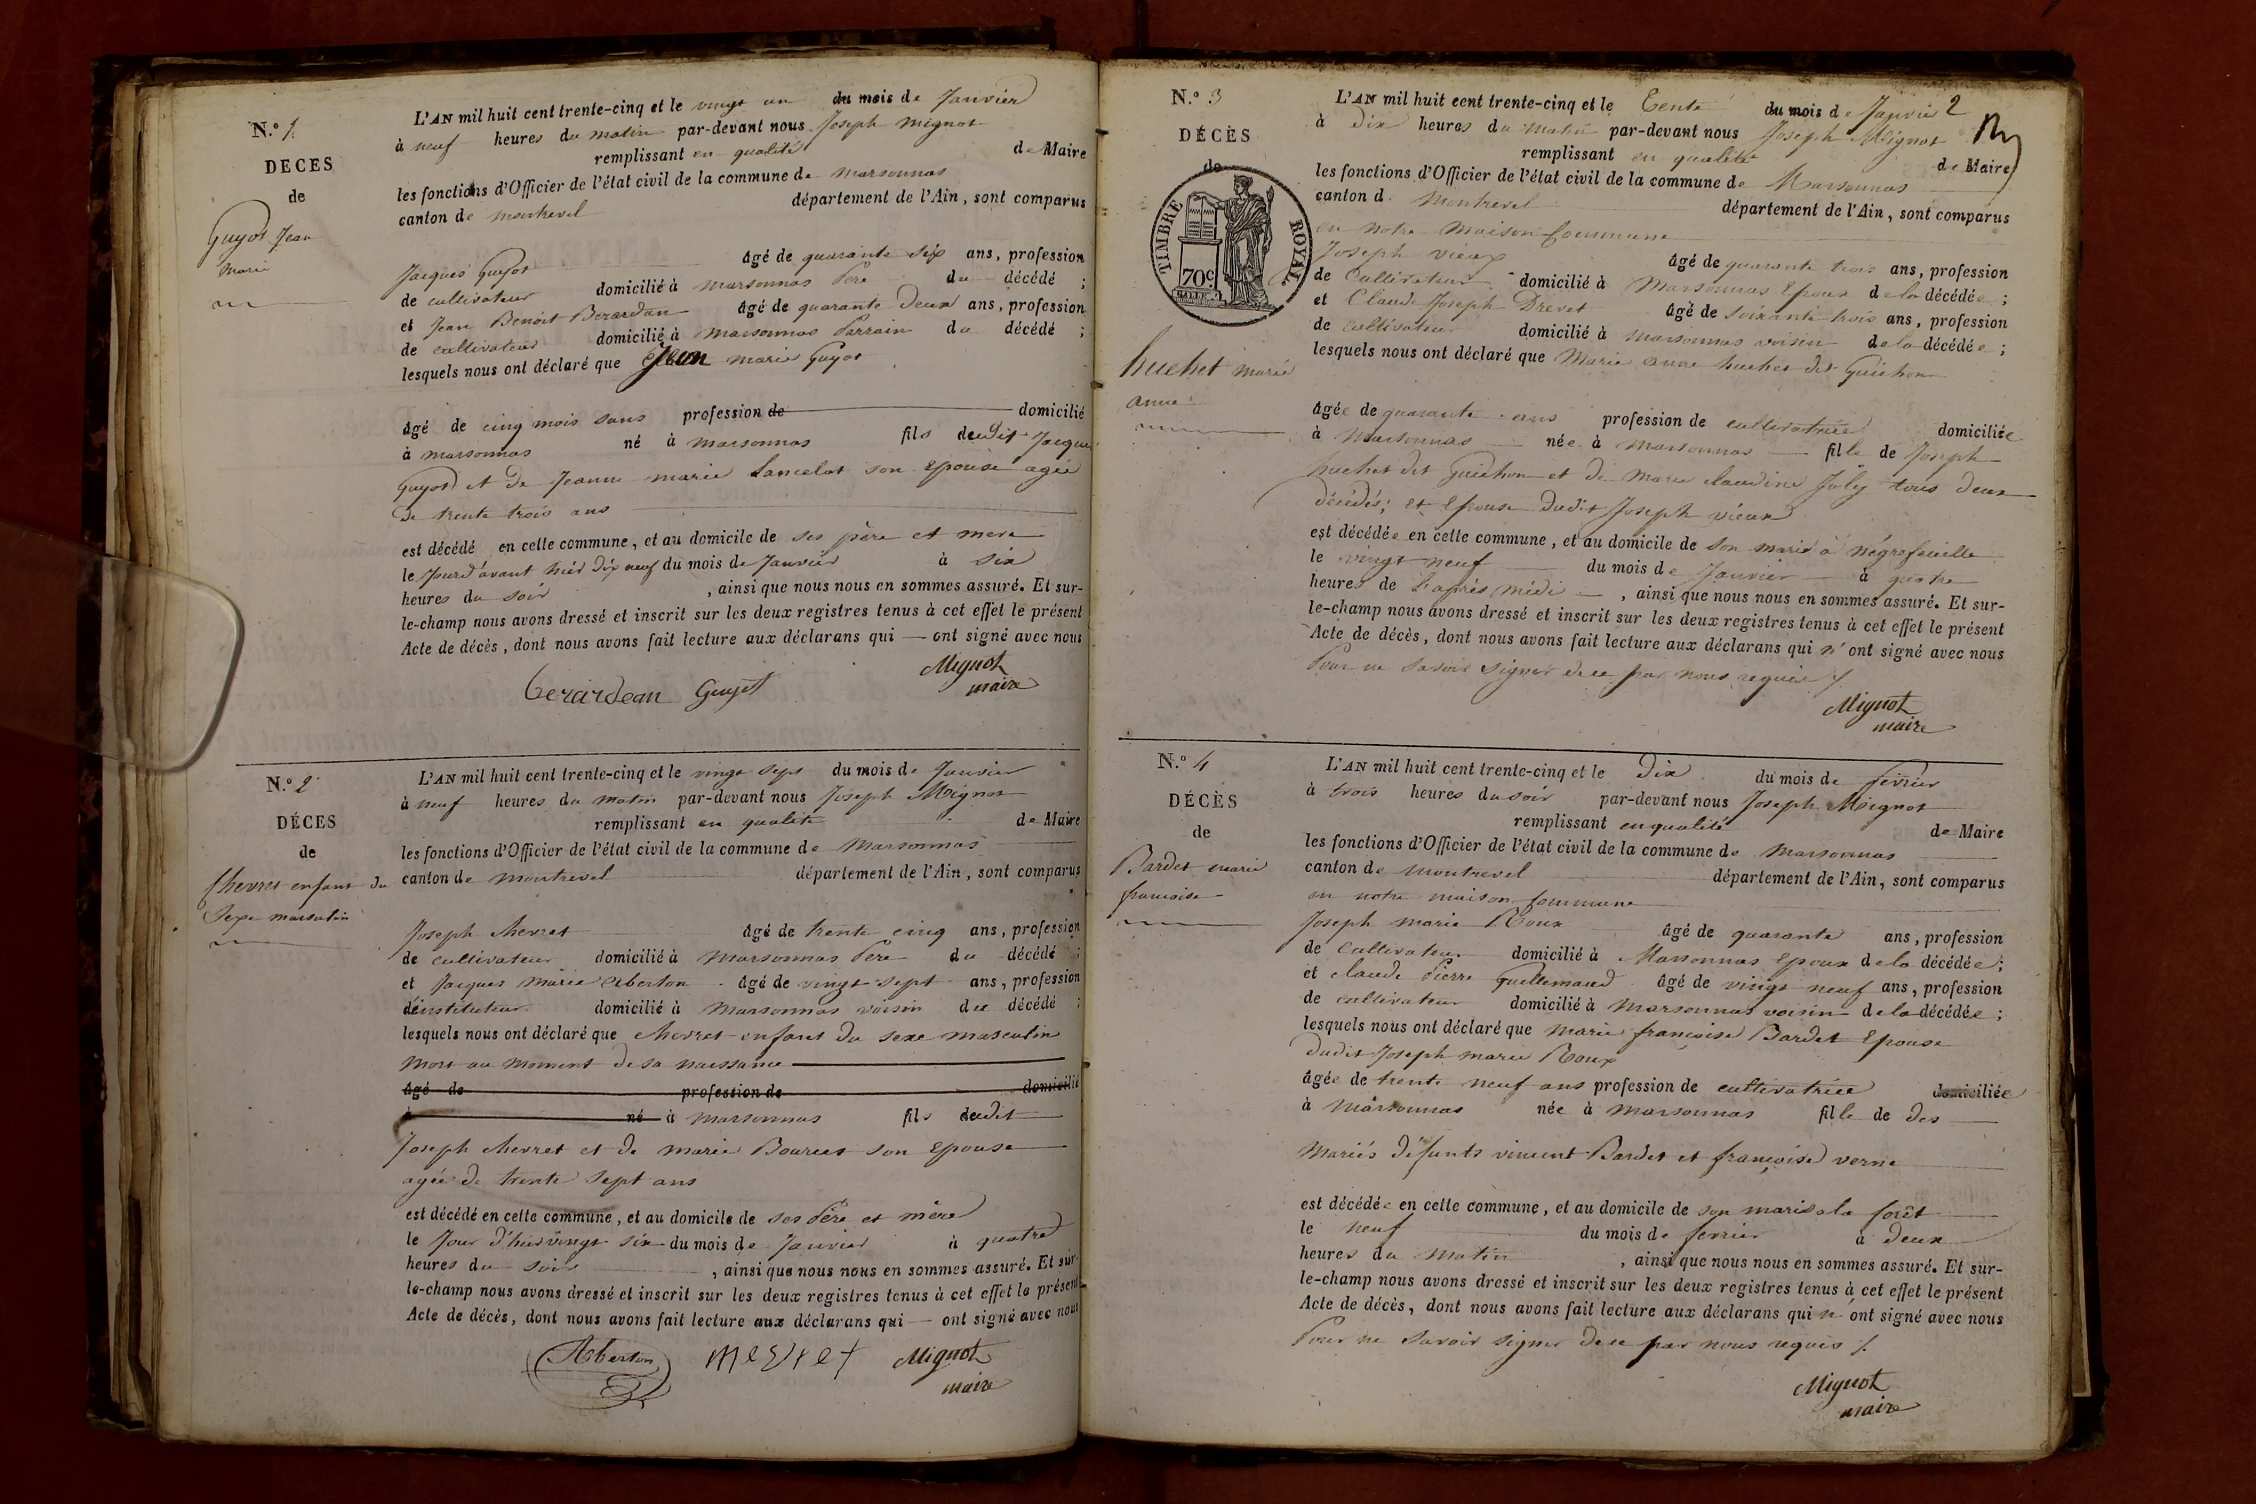 N.º 1
DECES
de
Guyot Jean
marie
L'AN mil huit cent trente-cinq et le vingt un du mois de Janvier
à neuf heures du matin par-devant nous Joseph Mignot
remplissant en qualité de Maire
les fonctions d'Officier de l'état civil de la commune de Marsonnas
canton de montrevel département de l'Ain, sont comparus
Jacques Guyot âgé de quarante six ans, profession
de cultivateur domicilié à marsonnas Père du décédé ;
et Jean Benoit Berardan âgé de quarante Deux ans, profession
de cultivateur domicilié à marsonnas Parrain du décédé ;
lesquels nous ont déclaré que Jean marie Guyot
âgé de cinq mois sans profession de domicilié
à marsonnas né à marsonnas fils dudit Jacques
Guyot et de Jeanne marie Lancelot son Epouse agée
de trente trois ans
est décédé en cette commune, et au domicile de ses père et mere
le Jour d'avant hier dix neuf du mois de Janvier à six
heures du soir , ainsi que nous nous en sommes assuré. Et sur-
le-champ nous avons dressé et inscrit sur les deux registres tenus à cet effet le présent
Acte de décès, dont nous avons fait lecture aux déclarans qui — ont signé avec nous
Berardean Guyot Mignot
maire
N.º 2
DÉCES
de
Chevret enfant du
Sexe masculin
L'AN mil huit cent trente-cinq et le vingt sept du mois de Janvier
à neuf heures du matin par-devant nous Joseph Mignot
remplissant en qualité de Maire
les fonctions d'Officier de l'état civil de la commune de Marsonnas
canton de montrevel département de l'Ain, sont comparus
Joseph chevret âgé de trente cinq ans, profession
de cultivateur domicilié à Marsonnas Père du décédé ;
et Jacques Marie Aberton âgé de vingt sept ans, profession
d'instituteur domicilié à Marsonnas voisin du décédé ;
lesquels nous ont déclaré que chevret enfant du sexe masculin
mort au moment de sa naissance
âgé de profession de domicilié
à né à marsonnas fils dudit
Joseph chevret et de marie Bourcet son Epouse
agée de trente sept ans
est décédé en cette commune, et au domicile de ses Père et mère
le Jour d'hier vingt six du mois de Janvier à quatre
heures du soir , ainsi que nous nous en sommes assuré. Et sur-
le-champ nous avons dressé et inscrit sur les deux registres tenus à cet effet le présent
Acte de décès, dont nous avons fait lecture aux déclarans qui — ont signé avec nous
Aberton Mignot
maire
N.º 3
DÉCÈS
de
TIMBRE ROYAL
70c
huchet marie
anne
2
L'AN mil huit cent trente-cinq et le Trente du mois de Janvier
à Dix heures du matin par-devant nous Joseph Mignot
remplissant en qualité de Maire
les fonctions d'Officier de l'état civil de la commune de Marsonnas
canton de Montrevel département de l'Ain, sont comparus
en notre Maison Commune
Joseph vieux âgé de quarante trois ans, profession
de Cultivateur domicilié à Marsonnas Epoux de la décédée ;
et Claude Joseph Drevet âgé de soixante trois ans, profession
de cultivateur domicilié à marsonnas voisin de la décédée ;
lesquels nous ont déclaré que Marie anne huchet dit Guichon
âgée de quarante ans profession de cultivatrice domiciliée
à Marsonnas née à marsonnas fille de Joseph
huchet dit Guichon et de Marie claudine Joly tous deux
décédés; et Epouse dudit Joseph vieux
est décédée en cette commune, et au domicile de son marié à négrefeuille
le vingt neuf du mois de Janvier à quatre
heures de l'après midi , ainsi que nous nous en sommes assuré. Et sur-
le-champ nous avons dressé et inscrit sur les deux registres tenus à cet effet le présent
Acte de décès, dont nous avons fait lecture aux déclarans qui n'ont signé avec nous
Pour ne savoir signer de ce par nous requis /.
Mignot
maire
N.º 4
DÉCÈS
de
Bardet marie
francoise
L'AN mil huit cent trente-cinq et le Dix du mois de février
à trois heures du soir par-devant nous Joseph Mignot
remplissant en qualité de Maire
les fonctions d'Officier de l'état civil de la commune de Marsonnas
canton de Montrevel département de l'Ain, sont comparus
en notre maison commune
Joseph marie Roux âgé de quarante ans, profession
de Cultivateur domicilié à Marsonnas Epoux de la décédée ;
et claude Pierre Guillemaud âgé de vingt neuf ans, profession
de cultivateur domicilié à Marsonnas voisin de la décédée ;
lesquels nous ont déclaré que Marie françoise Bardet Epouse
dudit Joseph marie Roux
âgée de trente neuf ans profession de cultivatrice domiciliée
à Marsonnas née à Marsonnas fille de des
Mariés défunts vincent Bardet et françoise verne
est décédée en cette commune, et au domicile de son marié a la forêt
le neuf du mois de fevrier à deux
heures du Matin , ainsi que nous nous en sommes assuré. Et sur-
le-champ nous avons dressé et inscrit sur les deux registres tenus à cet effet le présent
Acte de décès, dont nous avons fait lecture aux déclarans qui n'ont signé avec nous
Pour ne savoir signer de ce par nous requis /.
Mignot
maire